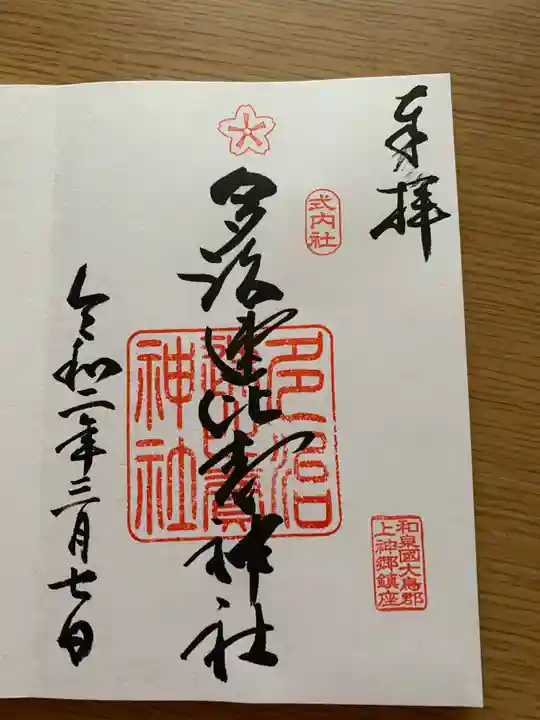 奉拝
式内社
和泉國大鳥郡
上神郷鎮座
多治速比売神社
多治
速比賣
神社
令和二年三月七日